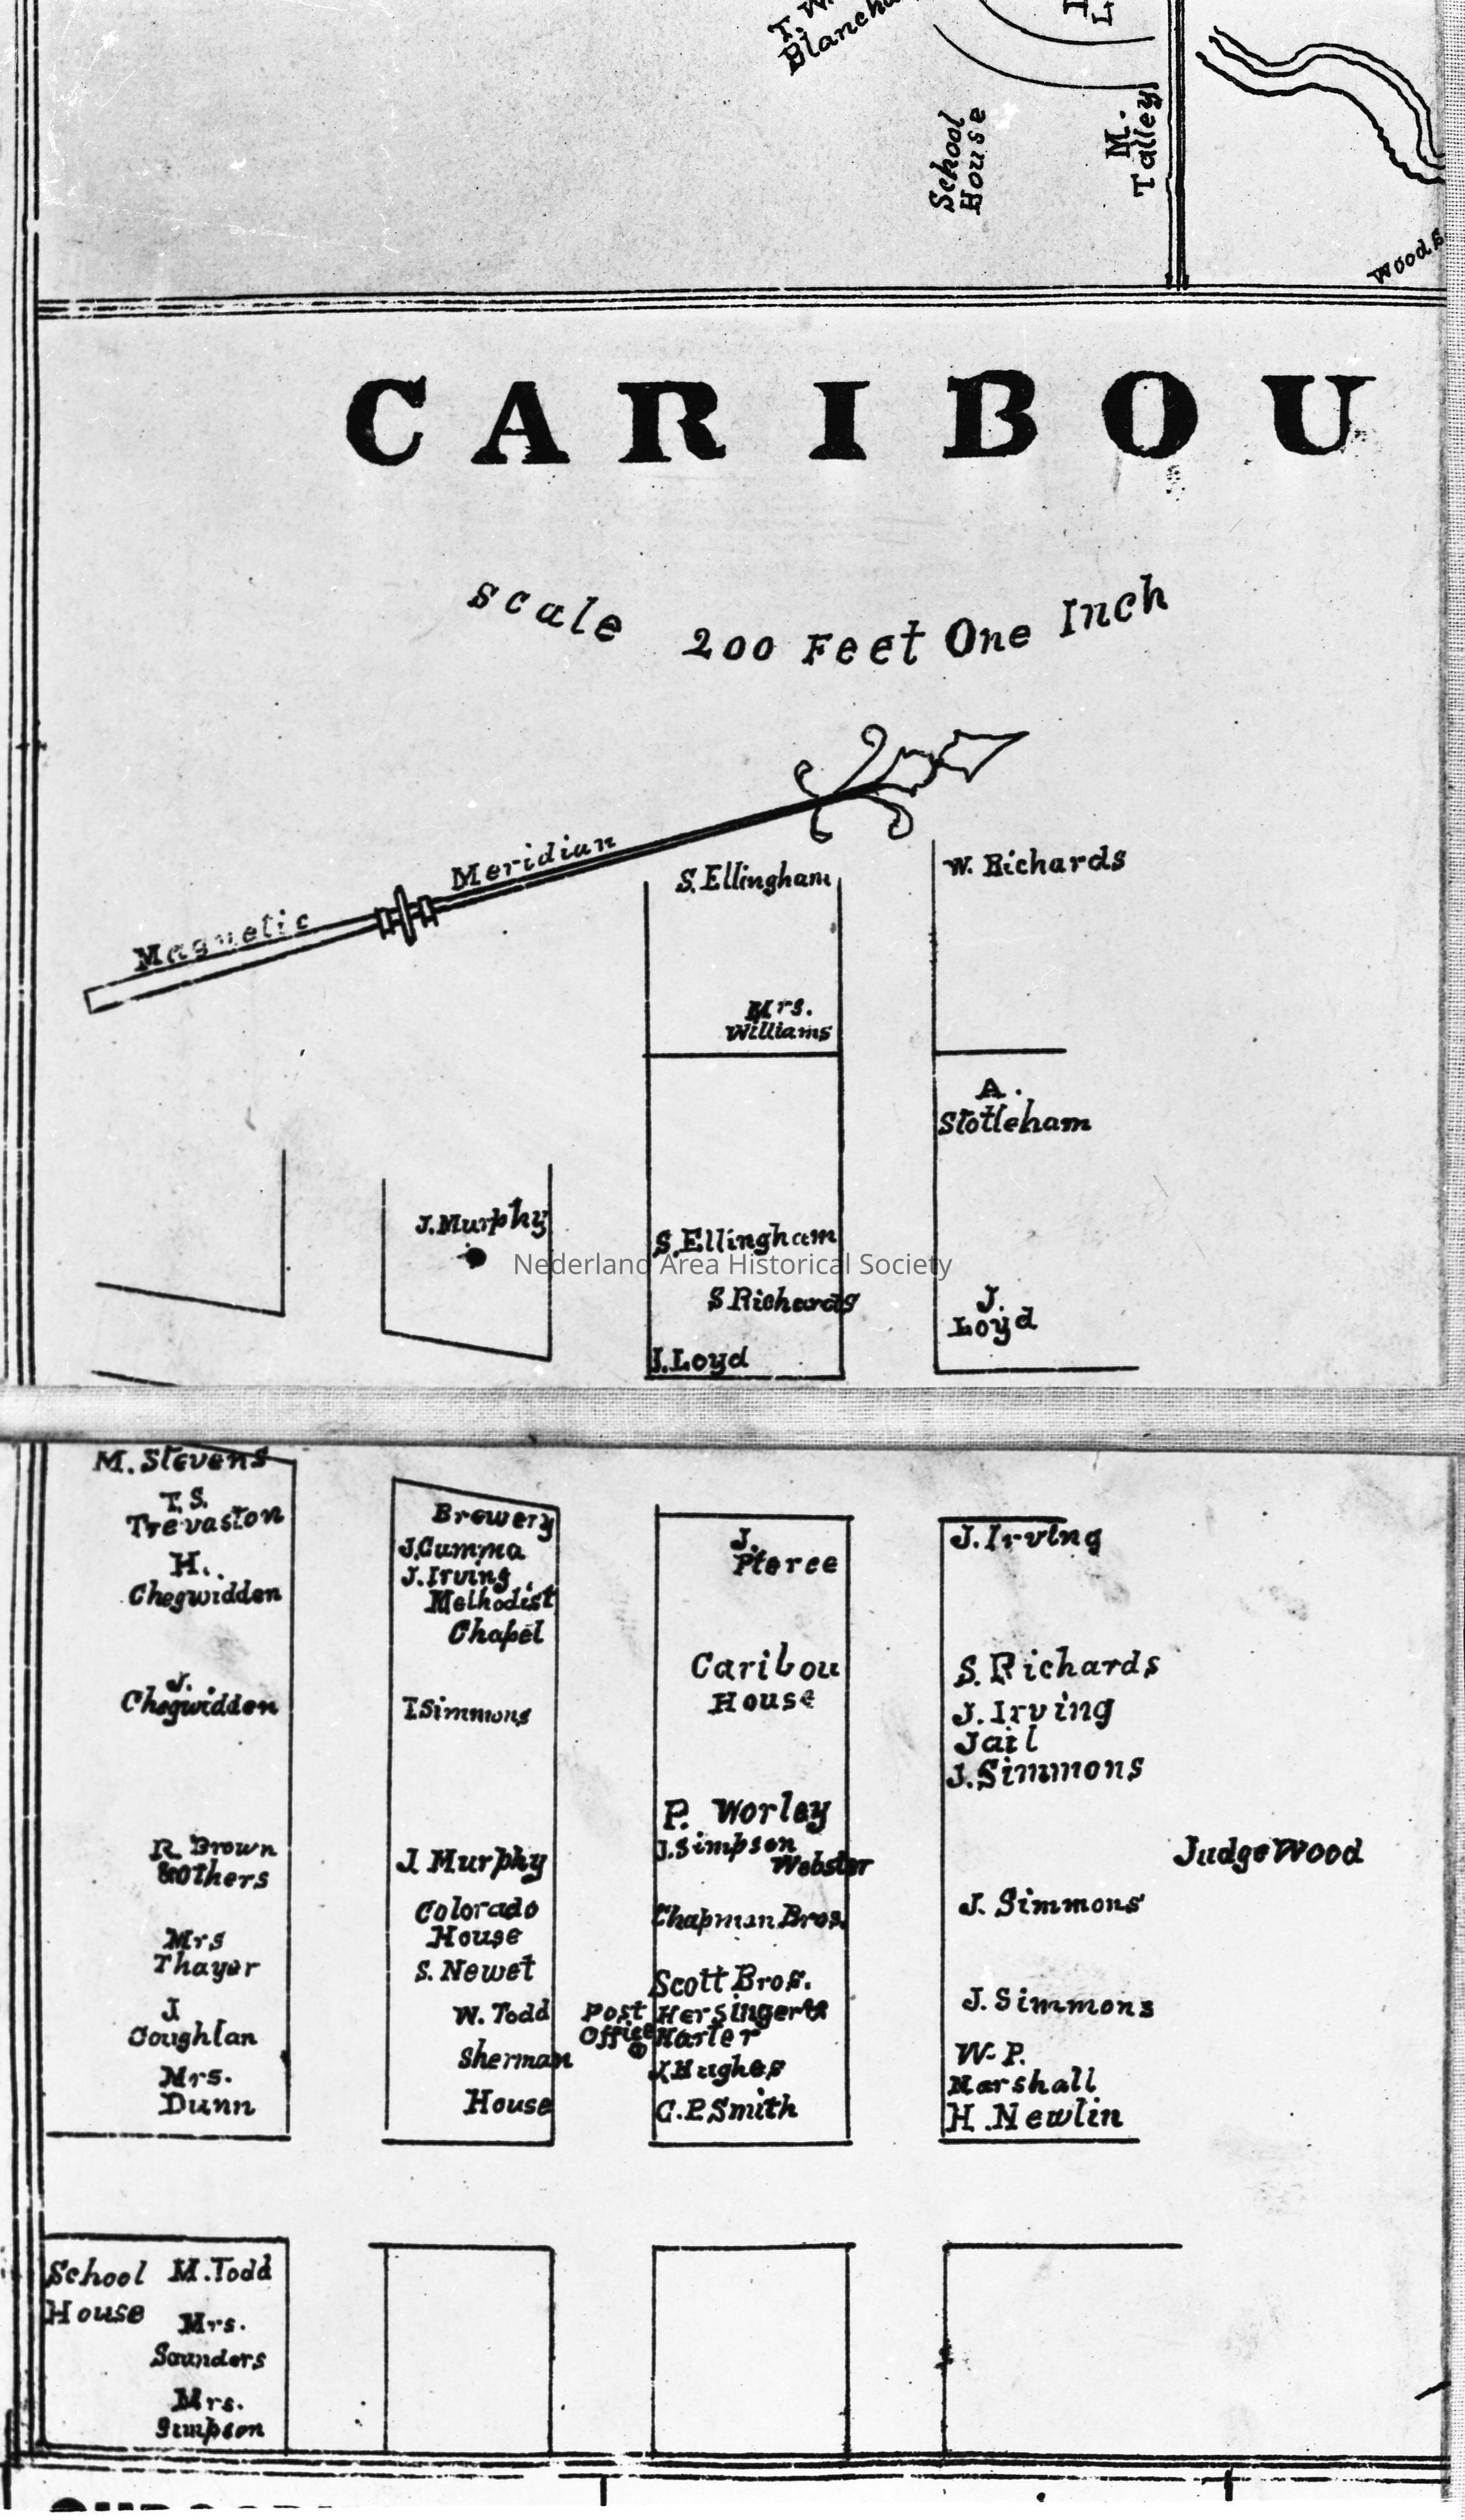 T. W.
School
House
M.
Talley
Woods
CARIBOU
Scale 200 Feet One Inch
Magnetic Meridian
S. Ellingham
W. Richards
Mrs.
Williams
A.
Stotleham
J. Murphy
S. Ellingham
Nederland Area Historical Society
S Richards
J.
Loyd
J. Loyd
M. Stevens
T. S.
Trevaston
H.
Chegwidden
J.
Chegwidden
R. Brown
& Others
Mrs
Thayer
J
Coughlan
Mrs.
Dunn
Brewery
J. Cumma
J. Irving
Methodist
Chapel
T Simmons
J. Murphy
Colorado
House
S. Newet
W. Todd
Sherman
House
J.
Pierce
Caribou
House
P. Worley
J. Simpson
Webster
Chapman Bros.
Scott Bros.
Post
Office
Harter
J. Hughes
C. P. Smith
J. Irving
S. Richards
J. Irving
Jail
J. Simmons
Judge Wood
J. Simmons
J. Simmons
W. P.
Marshall
H. Newlin
School
House
M. Todd
Mrs.
Saunders
Mrs.
Simpson